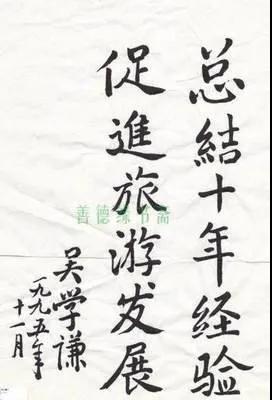 总结十年经验
促進旅游发展
吴学谦
一九九五年
十一月
善德缘书斋